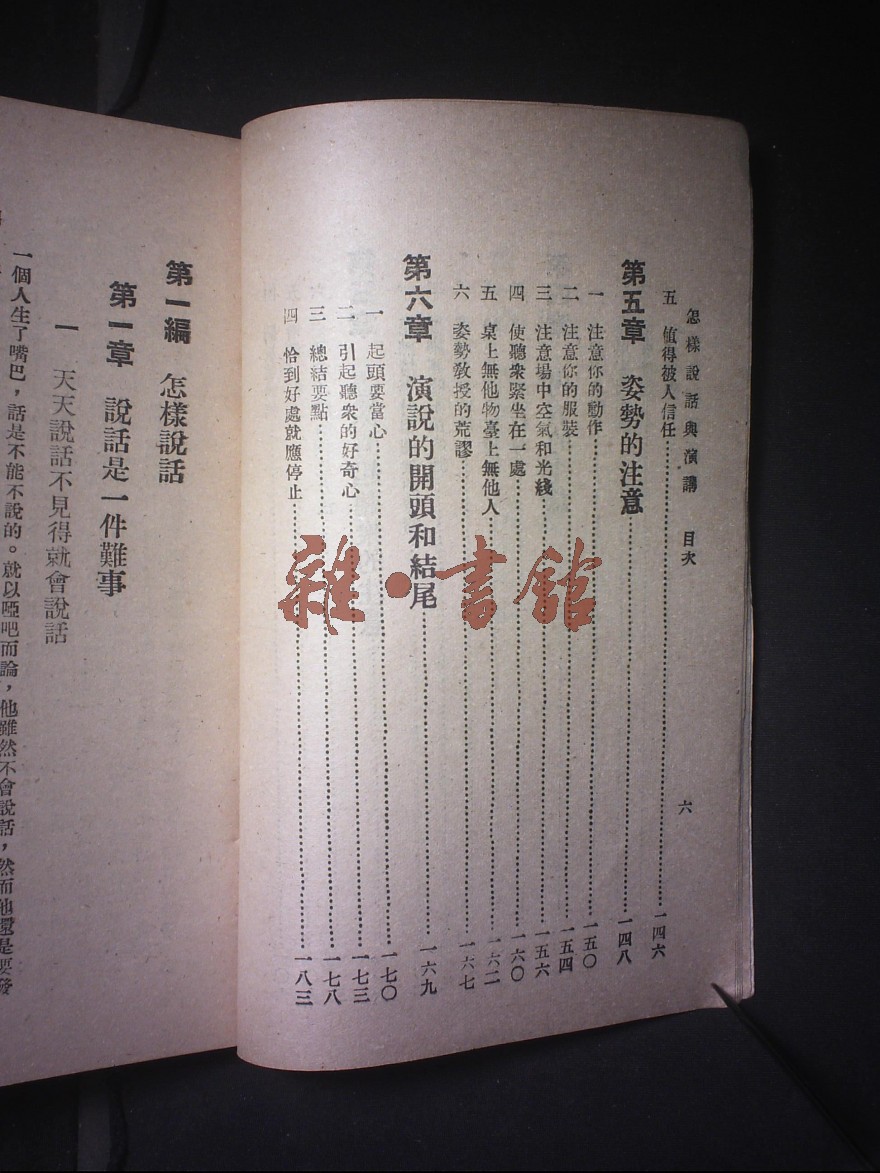 怎樣說話與演講 目次 六
五 值得被人信任……一四六
第五章 姿勢的注意……一四八
一 注意你的動作……一五〇
二 注意你的服裝……一五四
三 注意場中空氣和光綫……一五六
四 使聽衆緊坐在一處……一六〇
五 桌上無他物臺上無他人……一六二
六 姿勢敎授的荒謬……一六七
第六章 演說的開頭和結尾……一六九
一 起頭要當心……一七〇
二 引起聽衆的好奇心……一七三
三 總結要點……一七八
四 恰到好處就應停止……一八三
雜·書館
第一編 怎樣說話
第一章 說話是一件難事
一 天天說話不見得就會說話
一個人生了嘴巴，話是不能不說的。就以啞吧而論，他雖然不會說話，然而他還是要發